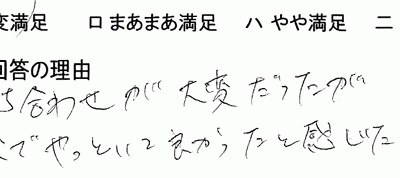 変満足 ロ まあまあ満足 ハ やや満足 ニ
回答の理由
ち合わせが 大変だったが
でやっといて良かったと感じた